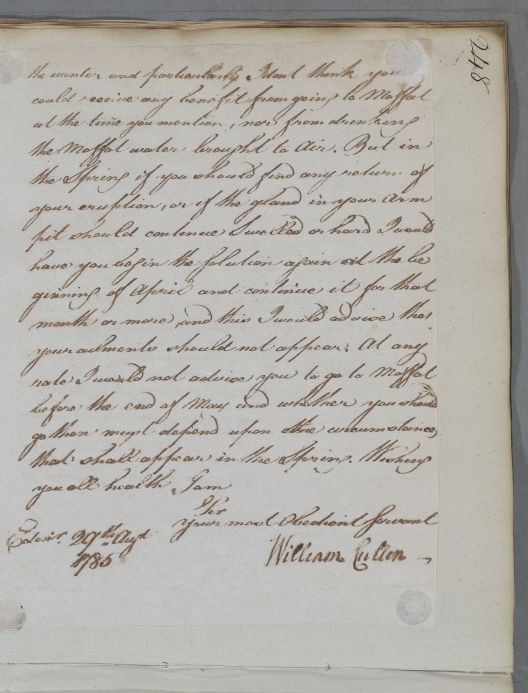 248
the winter and particularly I don't think you
could receive any benefit from going to Moffat
at the time you mention, nor from drinking
the Moffat water brought to Air. But in
the Spring if you should find any return of
your eruption, or if the gland in your Arm
pit should continue swelled or hard I would
have you begin the Solution again at the be
ginning of April and continue it for that
month or more and this I would advise tho
your ailments should not appear. At any
rate I would not advise you to go to Moffat
before the end of May and whether you should
go then must depend upon the circumstances
that shall appear in the Spring. Wishing
you all health I am
Sir
Your most Obedient servant
Edinr. 29th Augt
1785
William Cullen